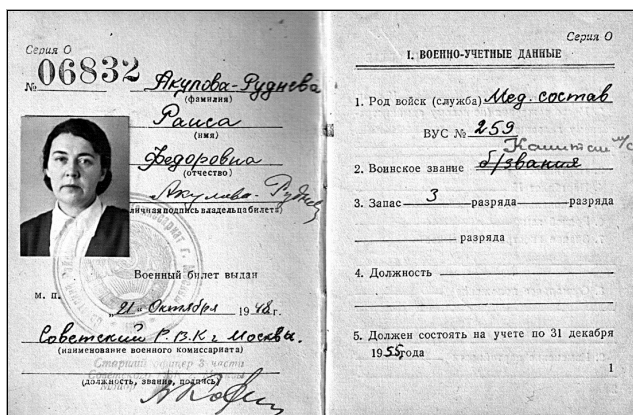 Серия О
№ 06832
Акулова-Руднева
(фамилия)
Раиса
(имя)
Федоровна
(отчество)
Акулова-Руднева
(личная подпись владельца билета)
Военный билет выдан
М. П.
„21" Октября 1948 г.
Советский Р.В.К г. Москвы.
(наименование военного комиссариата)
Старший офицер 3 части
(должность, звание, подпись)
Серия О
I. ВОЕННО-УЧЕТНЫЕ ДАННЫЕ
1. Род войск (служба) Мед. состав
ВУС № 259
Капитан м/с
2. Воинское звание б/звания
3. Запас 3 разряда разряда
разряда
4. Должность
5. Должен состоять на учете по 31 декабря
1955 года
1